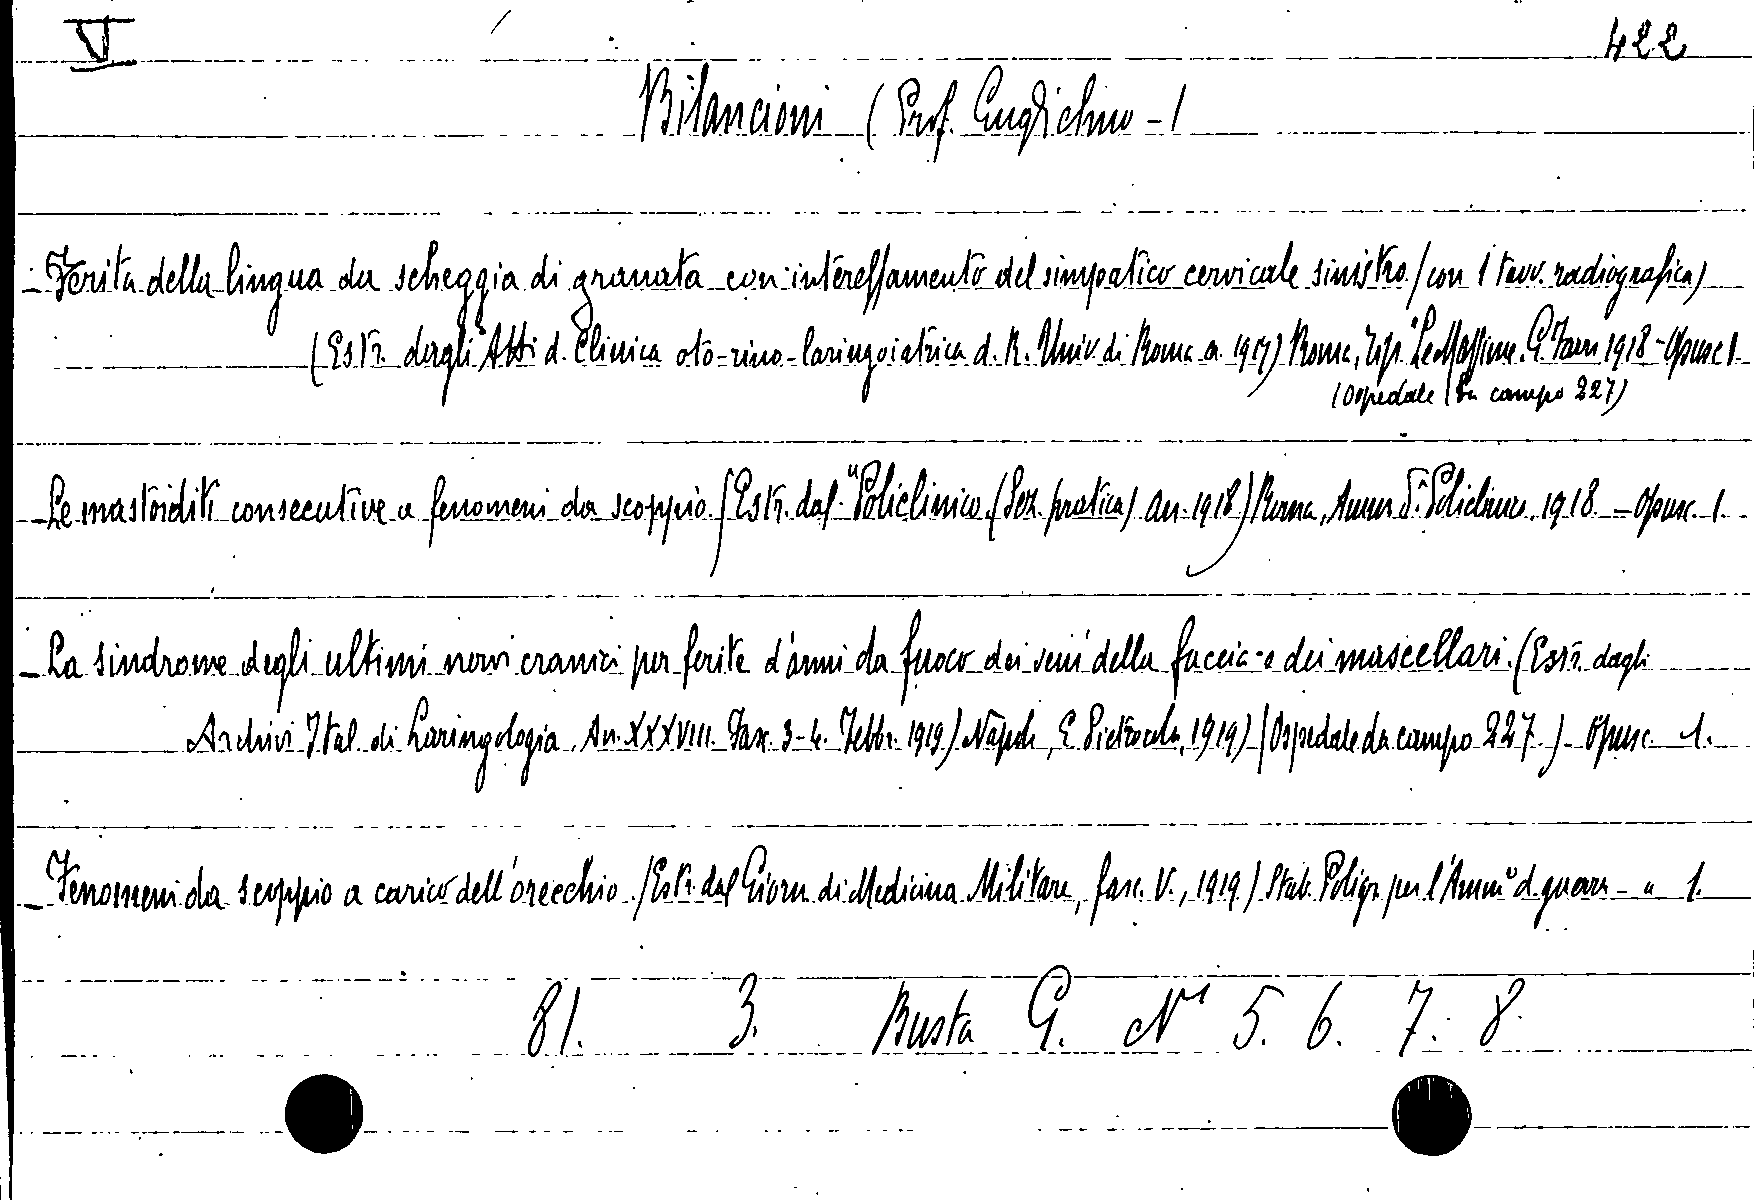 V 422
Bilancioni (Prof. Guglielmo - 1
- Ferita della lingua da scheggia di granata con interessamento del simpatico cervicale sinistro (con 1 tav. radiografica)
(Estr. dagli Atti d. Clinica oto-rino-laringoiatrica d. R. Univ di Roma a. 1917) Roma, Tip. Le Massime. G. 1918 - Opusc 1.
(Ospedale da campo 227)
- Le mastoiditi consecutive a fenomeni da scoppio. (Estr. dal "Policlinico. (Sez. pratica) An. 1918) Roma, Ammn d. Policlinico. 1918. - Opusc. 1.
- La sindrome degli ultimi nervi cranici per ferite d'armi da fuoco dei seni della faccia e dei mascellari. (Estr. dagli
Archivi Ital. di Laringologia. An. XXXVIII. Fasc. 3-4. Febbr. 1919) Napoli, E. Pietrocola, 1919) (Ospedale da campo 227.) - Opusc. 1.
- Fenomeni da scoppio a carico dell'orecchio. (Estr. dal Giorn. di Medicina Militare, fasc. V., 1919.) Stab. Poligr. per l'Ammne d. guerra - " 1.
81. 3. Busta G. Ni 5. 6. 7. 8.